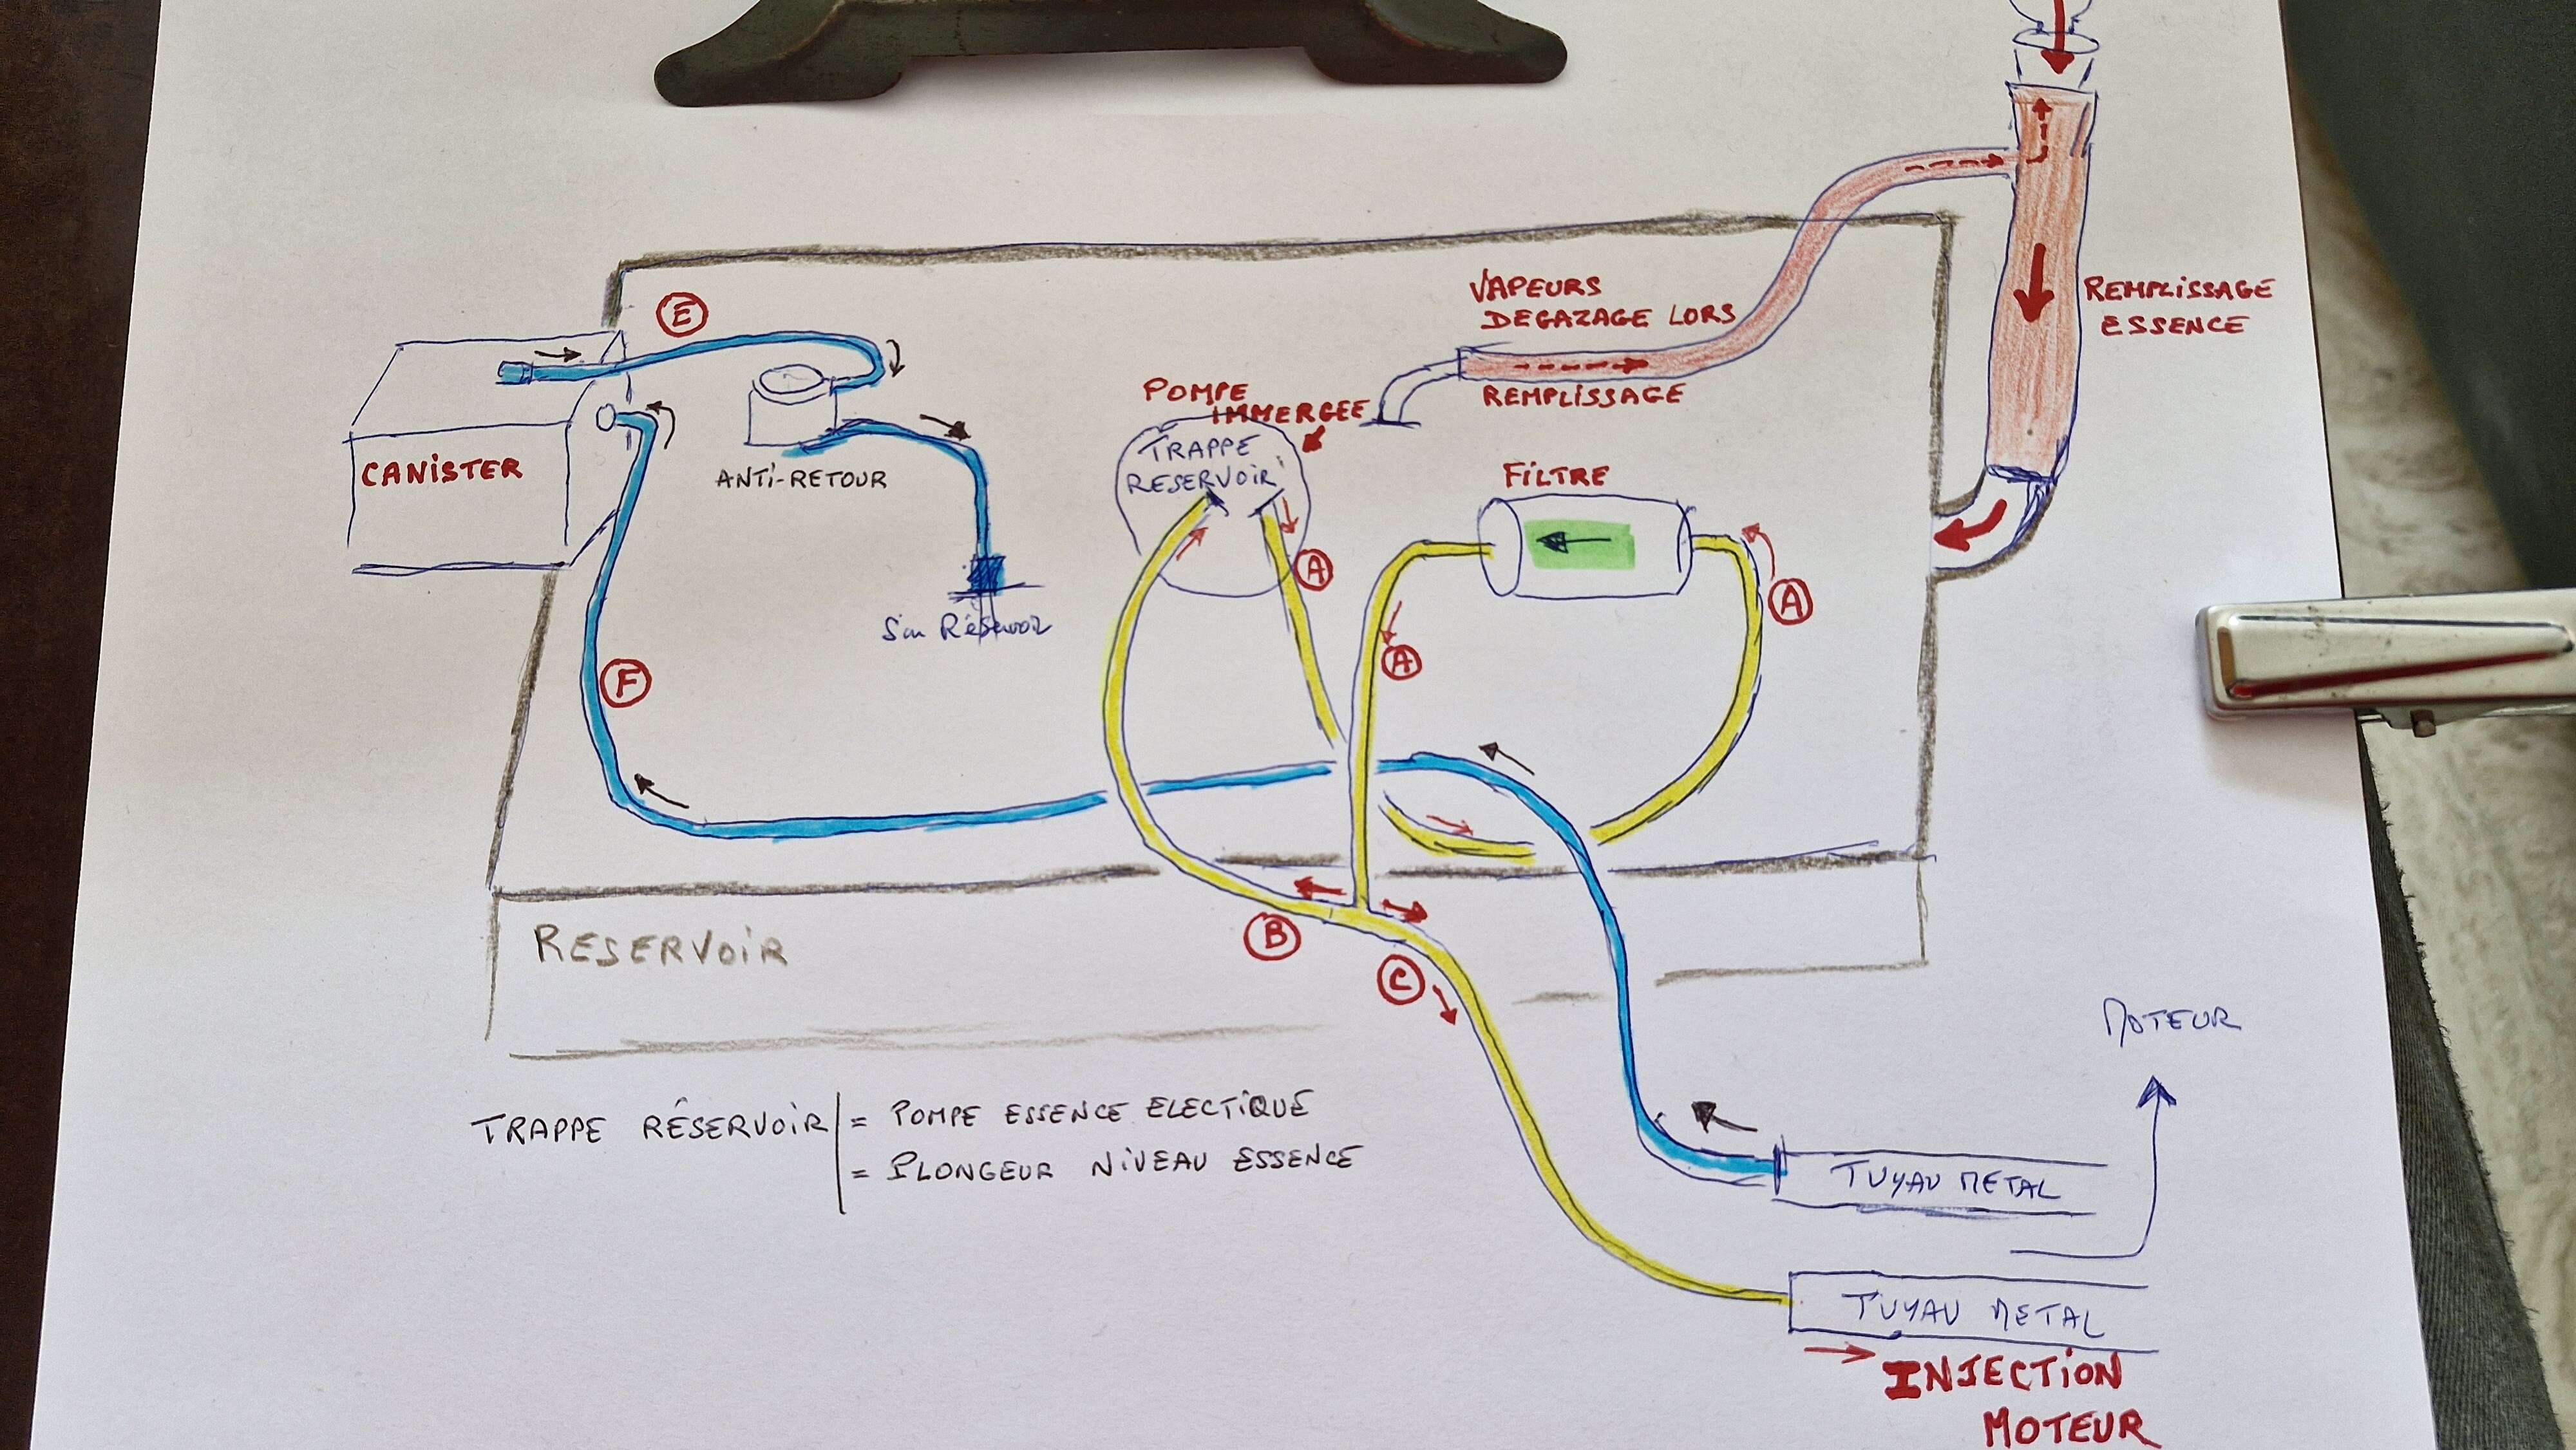 VAPEURS
DEGAZAGE LORS
REMPLISSAGE
REMPLISSAGE
ESSENCE
E
CANISTER
ANTI-RETOUR
POMPE
IMMERGEE
TRAPPE
RESERVOIR
FILTRE
A
A
A
Sur Réservoir
F
B
C
RESERVOIR
MOTEUR
TRAPPE RÉSERVOIR = POMPE ESSENCE ELECTIQUE
= PLONGEUR NIVEAU ESSENCE
TUYAU METAL
TUYAU METAL
INJECTION
MOTEUR